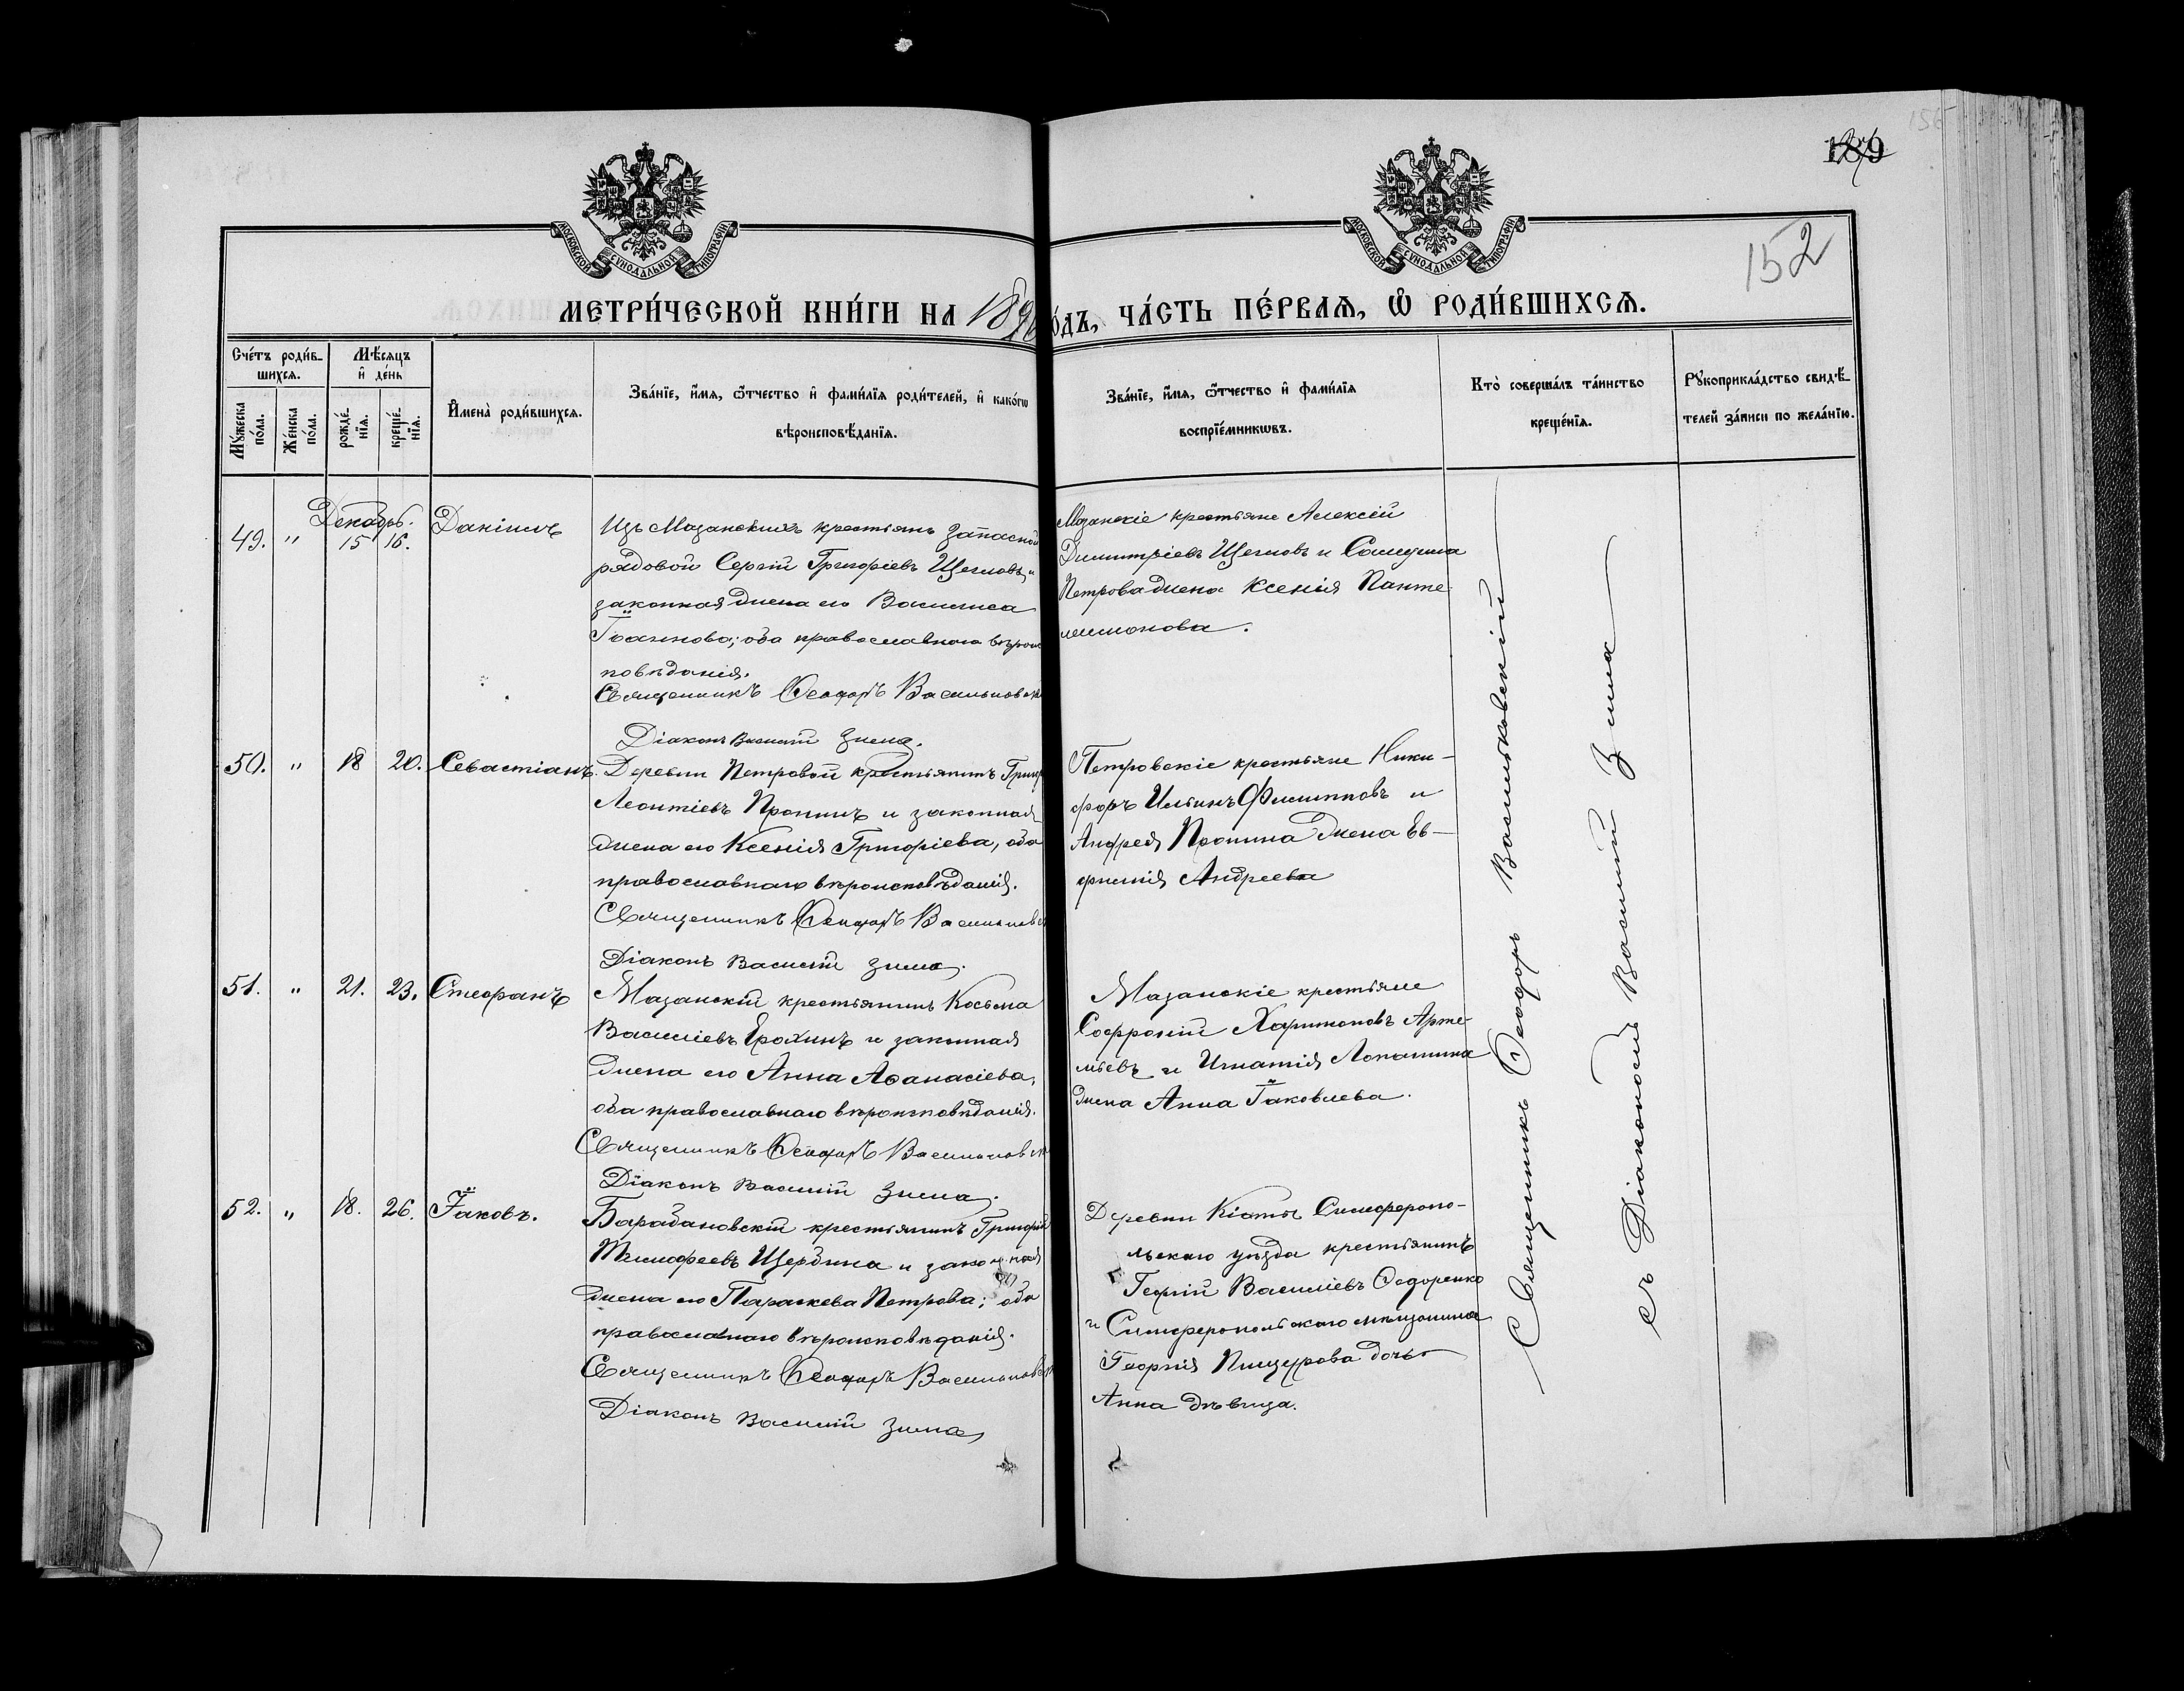 189
152
МОСКОВСКОЙ СѴНОДАЛЬНОЙ ТИПОГРАФІИ
МОСКОВСКОЙ СѴНОДАЛЬНОЙ ТИПОГРАФІИ
МЕТРИ́ЧЕСКОЙ КНИ́ГИ НА 189 ГО́ДЪ, ЧА́СТЬ ПЕ́РВАЯ, Ѽ РОДИ́ВШИХСѦ.
Сче́тъ роди́в-
шихсѧ.
Мѣ́сѧцъ
и҆ де́нь
Мꙋ́жеска по́ла.
Же́нска по́ла.
рожде́нїѧ.
креще́нїѧ.
И҆мена̀ роди́вшихсѧ.
Зва́нїе, и҆́мѧ, ѻ҆́тчество и҆ фами́лїѧ роди́телей, и҆ како́гѡ
вѣроисповѣ́данїѧ.
Зва́нїе, и҆́мѧ, ѻ҆́тчество и҆ фами́лїѧ
воспрїе́мникѡвъ.
Кто̀ соверша́лъ та́инство
креще́нїѧ.
Рꙋкоприкла́дство свидѣ́-
телей за́писи по жела́нїю.
Декабрь.
49. " 15 16. Даніилъ
Изъ Мазанскихъ крестьянъ запасной
рядовой Сергій Григоріевъ Щегловъ и
законная жена его Василиса
Іоаннова; оба православнаго вѣроис
повѣданія.
Священникъ Ѳеодоръ Васильковск
Діаконъ Василій Зима.
Мазанскіе крестьяне Алексій
Димитріевъ Щегловъ и
Петрова жена Ксенія Панте
леимонова.
50. " 18 20. Севастіанъ.
Деревни Петровой крестьянинъ Григор
Леонтіевъ Пронинъ и законная
жена его Ксенія Григоріева, оба
православнаго вѣроисповѣданія.
Священникъ Ѳеодоръ Васильковск
Діаконъ Василій Зима.
Петровскіе крестьяне Ники-
форъ Ильинъ Филипповъ и
Андрея Пронина жена Ев-
фимія Андреева
51. " 21. 23. Стефанъ
Мазанскій крестьянинъ Косьма
Василіевъ Ерохинъ и законная
жена его Анна Аѳанасіева,
оба православнаго вѣроисповѣданія.
Священникъ Ѳеодоръ Васильковск
Діаконъ Василій Зима.
Мазанскіе крестьяне
Софроній Харитоновъ Арте-
мьевъ и Игнатія Лопатина
жена Анна Іаковлева.
52. " 18. 26. Іаковъ.
Барабановскій крестьянинъ Григорій
Тимофеевъ Щербина и законная
жена его Параскева Петрова; оба
православнаго вѣроисповѣданія.
Священникъ Ѳеодоръ Васильковск
Діаконъ Василій Зима
Деревни Кіятъ Симферопо-
льскаго уѣзда крестьянинъ
Георгій Василіевъ Ѳедоренко
и Симферопольскаго мѣщанина
Георгія Пищурова дочь
Анна дѣвица.
Священникъ Ѳеодоръ Васильковскій
съ Діакономъ Василій Зима